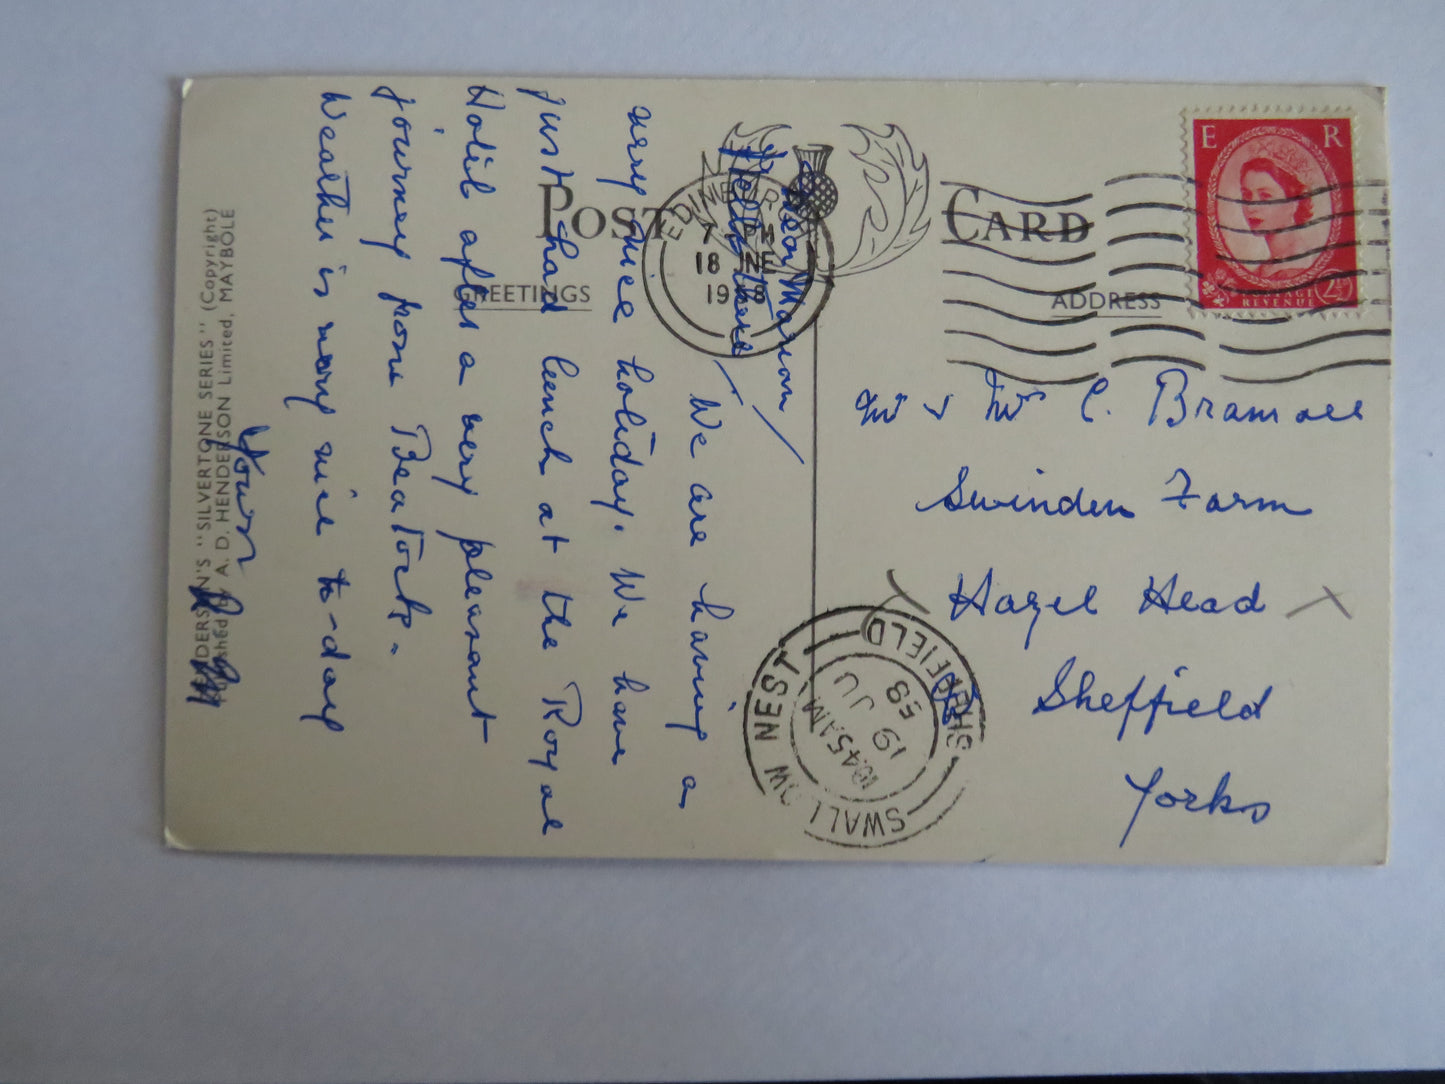 POST CARD
GREETINGS
ADDRESS
E R
POSTAGE
REVENUE
2½D
EDINBURGH
7 PM
18 JNE
1958
Dear Marion /
Nellis there /
We are having a
very nice holiday. We have
just had lunch at the Royal
Hotel after a very pleasant
journey from Beattock.
Weather is very nice to-day
Yours
Mr & Mrs C. Bramall
Swinden Farm
Hazel Head
Sheffield
Yorks
SWALLOW NEST
SHEFFIELD
10.45AM
19 JU
58
HENDERSON'S "SILVERTONE SERIES" (Copyright)
Published by A. D. HENDERSON Limited, MAYBOLE